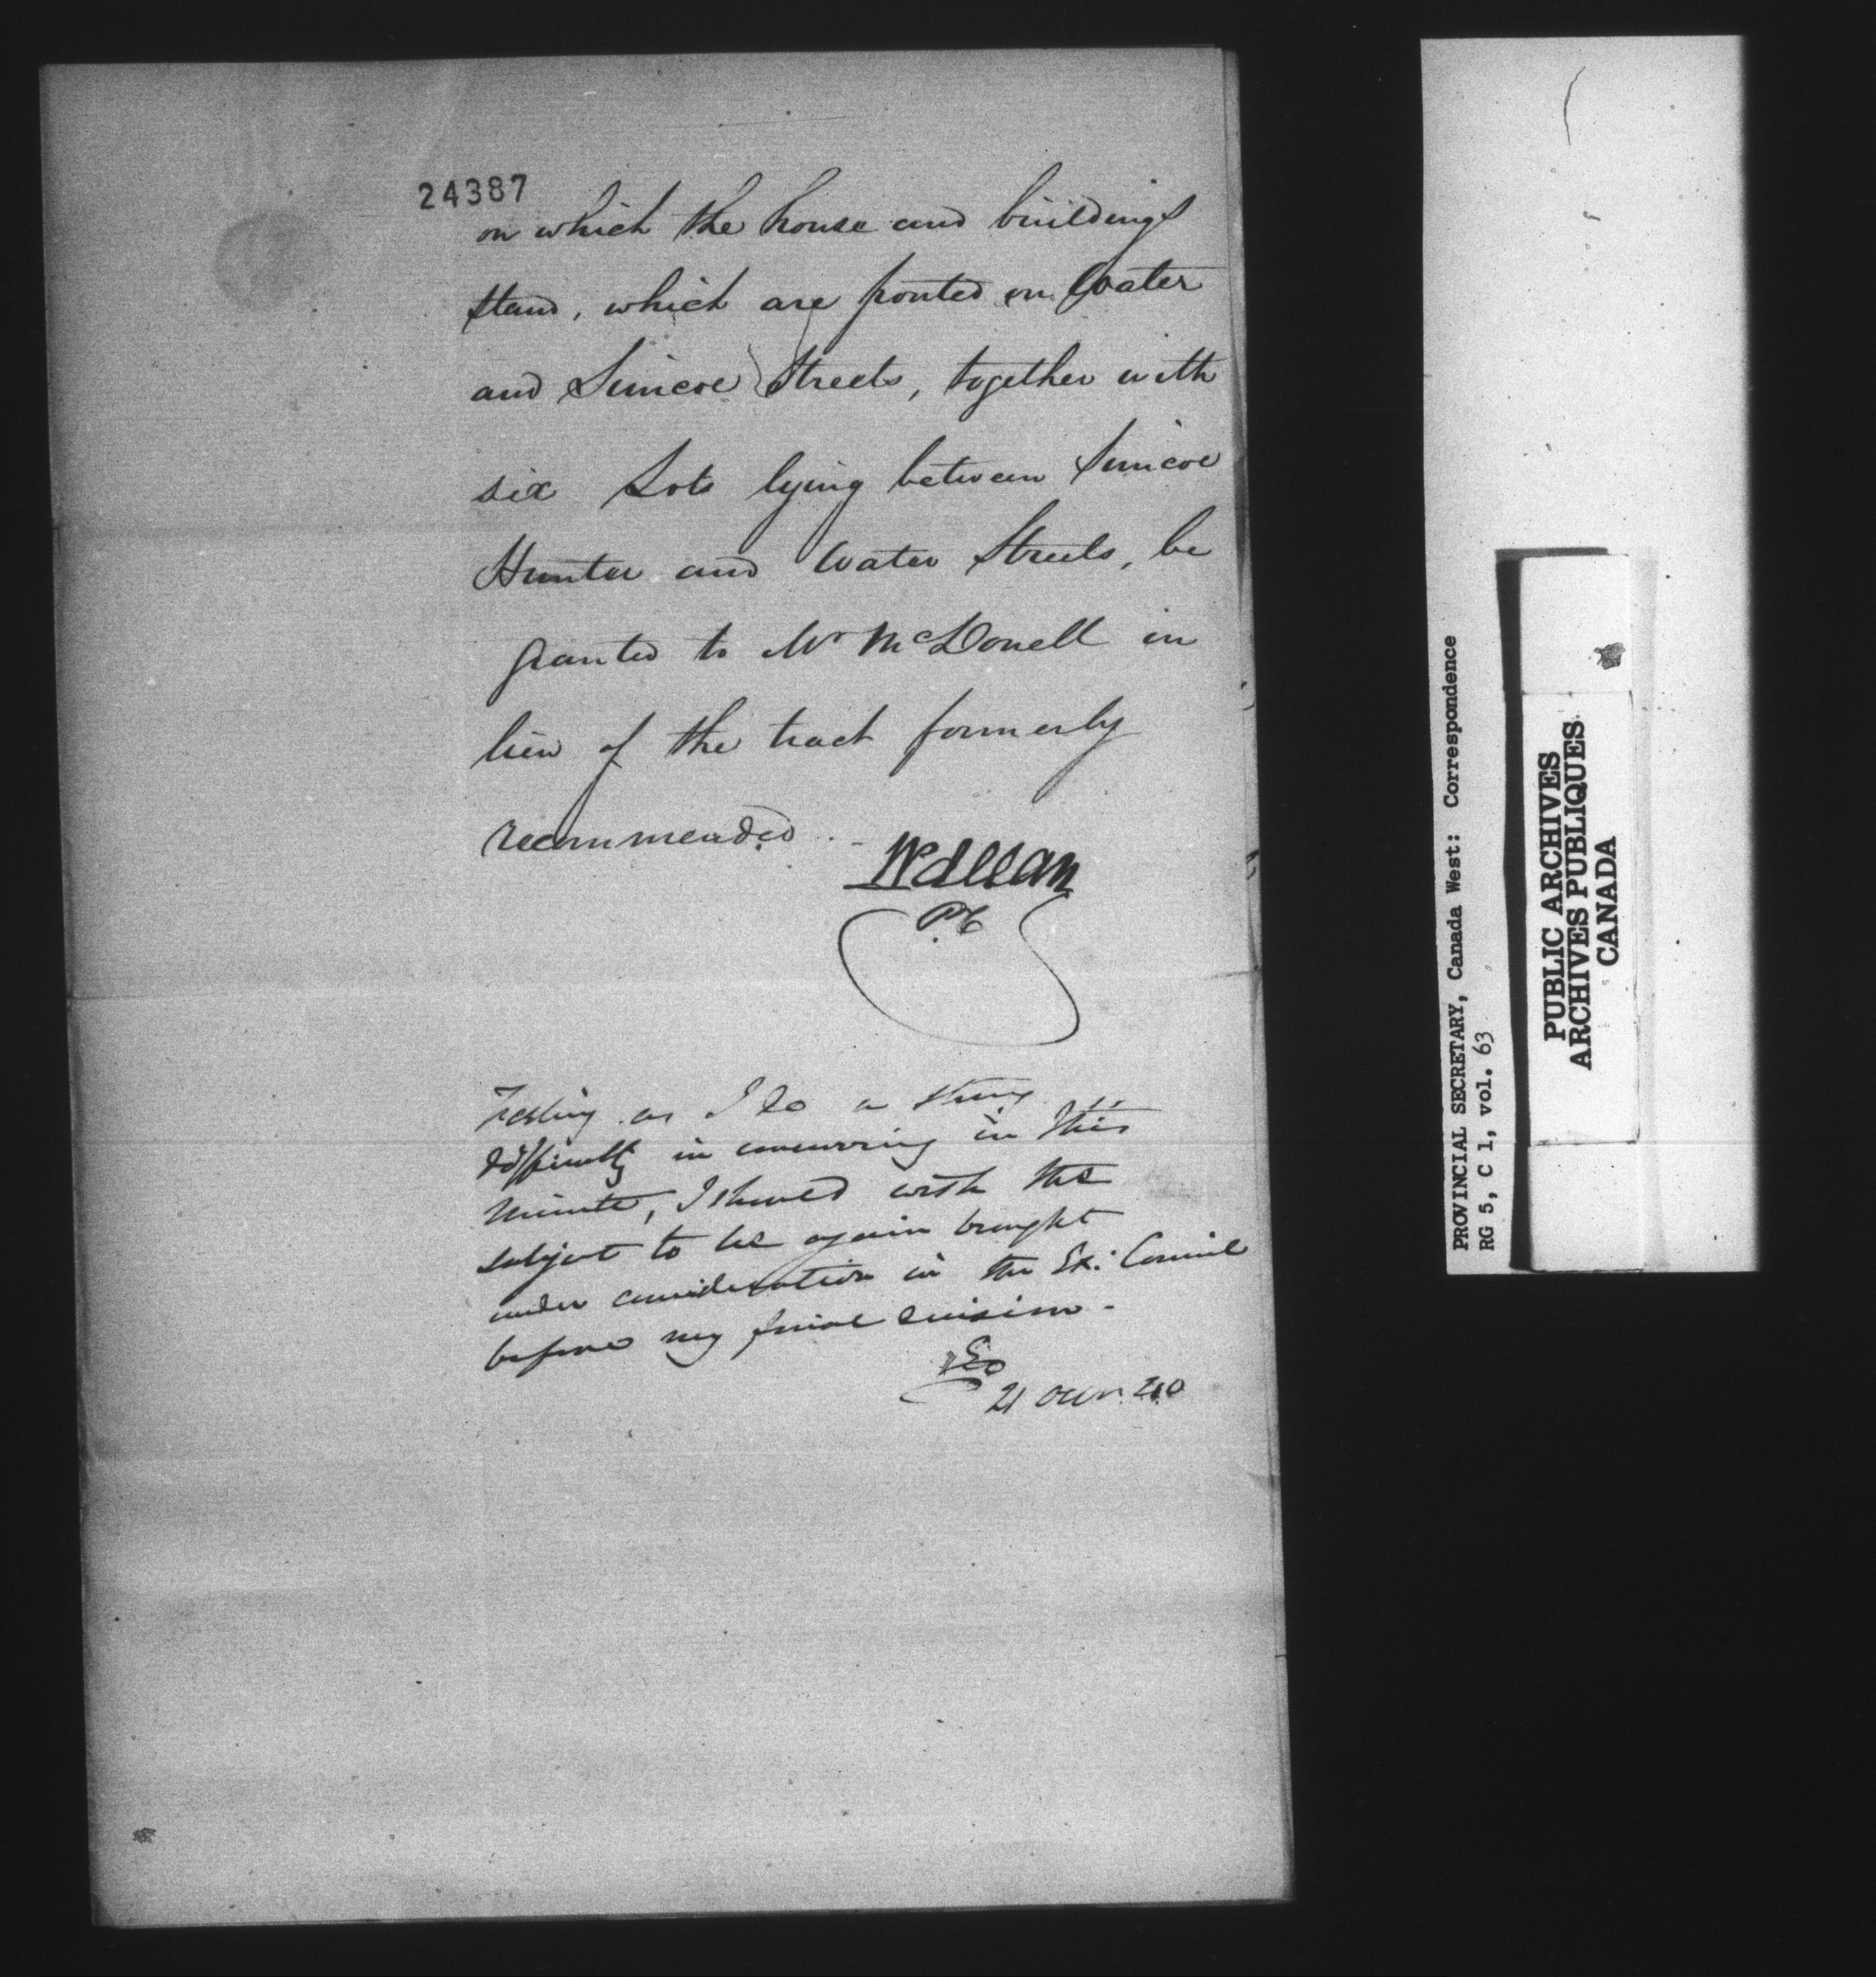 24387
on which the house and buildings
stand, which are fronted on Water
and Simcoe Streets, together with
six Lots lying between Simcoe
Hunter and Water Streets, be
granted to Mr McDonell in
lieu of the tract formerly
recommended.
Wm Allan
P.C
Feeling as I do a strong
difficulty in concurring in this
Minute, I should wish the
subject to be again brought
under consideration in the Ex: Council
before my final decision.
21 40
PROVINCIAL SECRETARY, Canada West: Correspondence
RG 5, C 1, vol. 63
PUBLIC ARCHIVES
ARCHIVES PUBLIQUES
CANADA